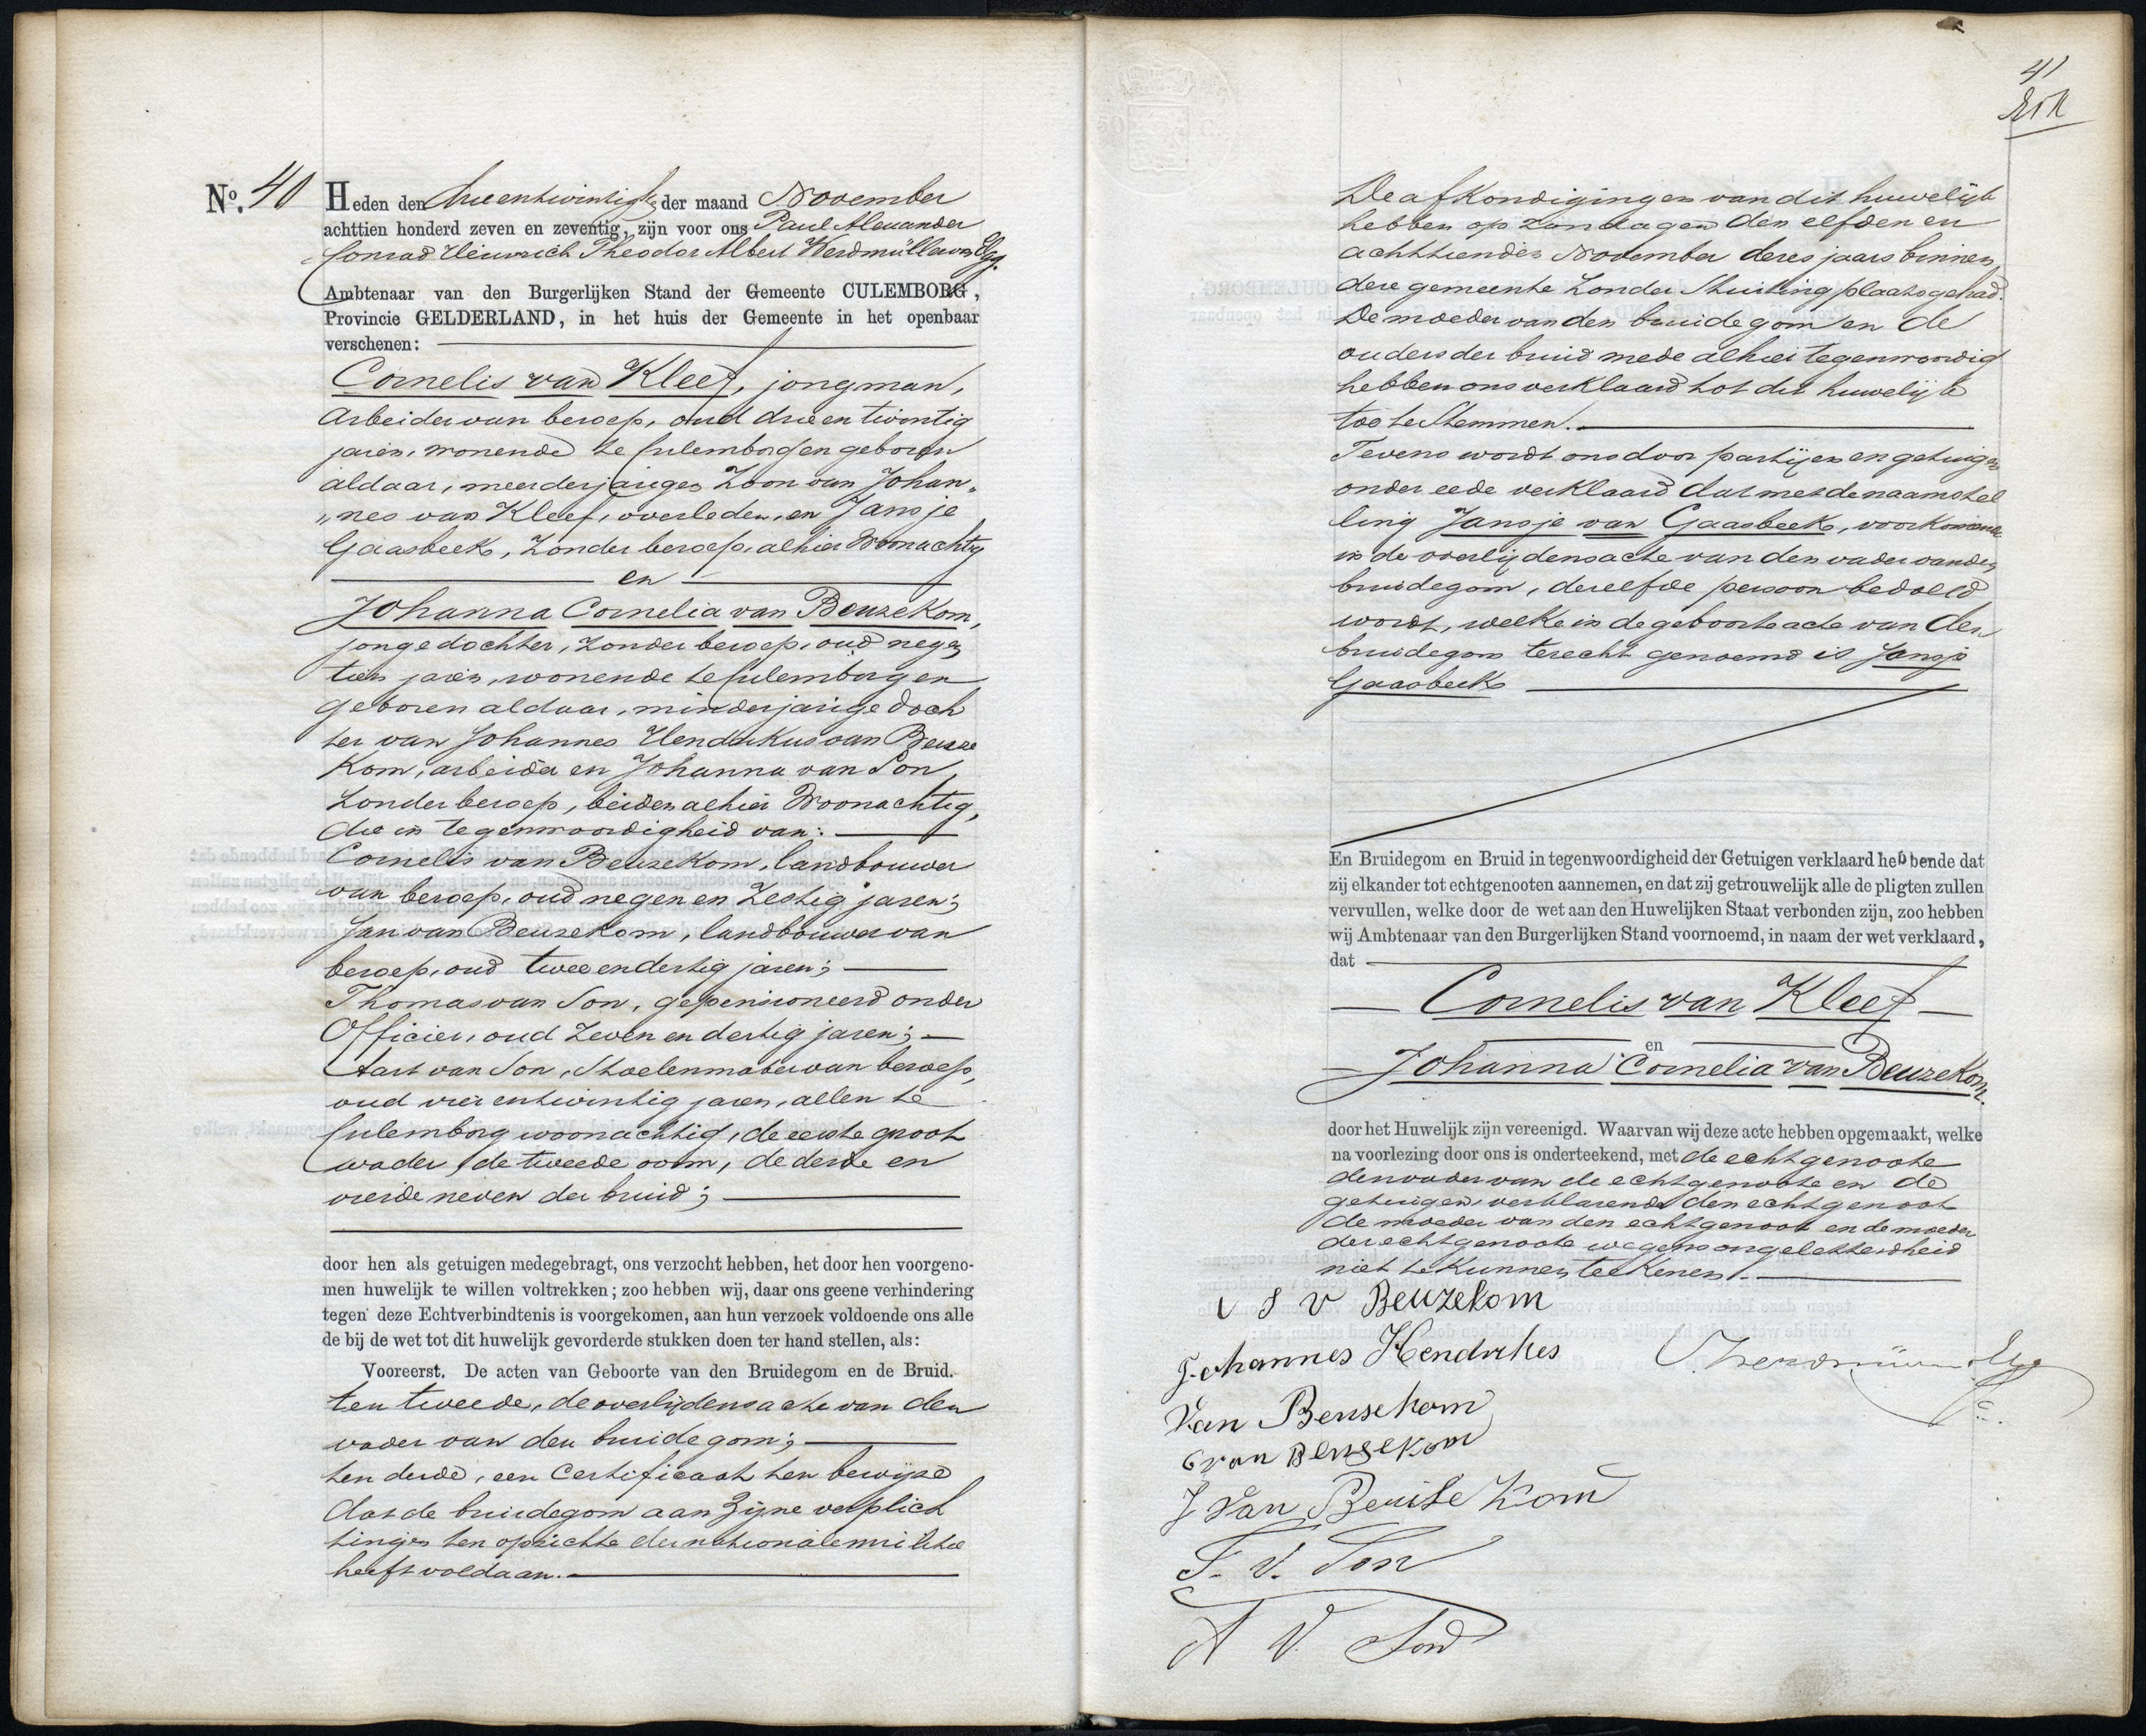 No. 40
Heden den drieentwintigste der maand November
achttien honderd zeven en zeventig, zijn voor ons Paul Alexander
Conrad Heinrich Theodor Albert Werdmüller von Elgg.
Ambtenaar van den Burgerlijken Stand der Gemeente CULEMBORG,
Provincie GELDERLAND, in het huis der Gemeente in het openbaar
verschenen:
Cornelis van Kleef, jongman,
arbeider van beroep, oud drieen twintig
jaren, wonende te Culemborg en geboren
aldaar, meerderjarigen zoon van Johan„
„nes van Kleef, overleden, en Jansje
Gaasbeek, zonder beroep, alhier woonachtig
en
Johanna Cornelia van Beuzekom,
jonge dochter, zonder beroep, oud negen
tien jaren, wonende te Culemborg en
geboren aldaar, minderjarige doch
ter van Johannes Hendrikus van Beuze
kom, arbeider en Johanna van Son,
zonder beroep, beiden alhier woonachtig,
die in tegenwoordigheid van:
Cornelis van Beuzekom, landbouwer
van beroep, oud negen en zestig jaren;
Jan van Beuzekom, landbouwer van
beroep, oud twee en dertig jaren;
Thomas van Son, gepensioneerd onder
Officier, oud zeven en dertig jaren;
Aart van Son, Stoelenmaker van beroep,
oud vier entwintig jaren, allen te
Culemborg woonachtig, de eerste groot
vader, de tweede oom, de derde en
vierde neven der bruid;
door hen als getuigen medegebragt, ons verzocht hebben, het door hen voorgeno-
men huwelijk te willen voltrekken; zoo hebben wij, daar ons geene verhindering
tegen deze Echtverbindtenis is voorgekomen, aan hun verzoek voldoende ons alle
de bij de wet tot dit huwelijk gevorderde stukken doen ter hand stellen, als:
Vooreerst. De acten van Geboorte van den Bruidegom en de Bruid.
ten tweede, de overlijdensacte van den
vader van den bruidegom;
ten derde, een Certificaat ten bewijze
dat de bruidegom aan zijne verplich
tingen ten opzichte der nationale militie
heeft voldaan.
41
De afkondigingen van dit huwelijk
hebben op zondagen den elfden en
achttienden November dezes jaars binnen
deze gemeente zonder stuiting plaats gehad.
De moeder van den bruidegom en de
ouders der bruid mede alhier tegenwoordig
hebben ons verklaard tot dit huwelijk
toe te stemmen.
Tevens wordt ons door partijen en getuigen
onder eede verklaard dat met de naamstel
ling Jansje van Gaasbeek, voorkomende
in de overlijdensacte van den vader van den
bruidegom, dezelfde persoon bedoeld
wordt, welke in de geboorteacte van den
bruidegom terecht genoemd is Jansje
Gaasbeek
En Bruidegom en Bruid in tegenwoordigheid der Getuigen verklaard hebbende dat
zij elkander tot echtgenooten aannemen, en dat zij getrouwelijk alle de pligten zullen
vervullen, welke door de wet aan den Huwelijken Staat verbonden zijn, zoo hebben
wij Ambtenaar van den Burgerlijken Stand voornoemd, in naam der wet verklaard,
dat
Cornelis van Kleef
en
Johanna Cornelia van Beuzekom.
door het Huwelijk zijn vereenigd. Waarvan wij deze acte hebben opgemaakt, welke
na voorlezing door ons is onderteekend, met de echtgenoote
den vader van de echtgenoote en de
getuigen, verklarende den echtgenoot
de moeder van den echtgenoot en de moeder
der echtgenoote wegens ongeletterdheid
niet te kunnen teekenen.
v Beuzekom
Johannes Hendrikes
van Beusekom
C van Beusekom
J Van Beuse kom
T. V. Son
A V. Son